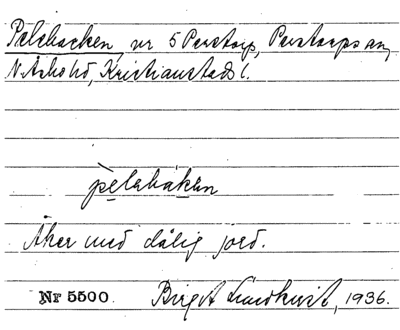 Pelabacken, nr 5 Perstorp, Perstorps sn,
N. Åsbo hd, Kristianstads l.
pelabakan
Åker med dålig jord.
Nr 5500. Birgit Lundkvist, 1936.